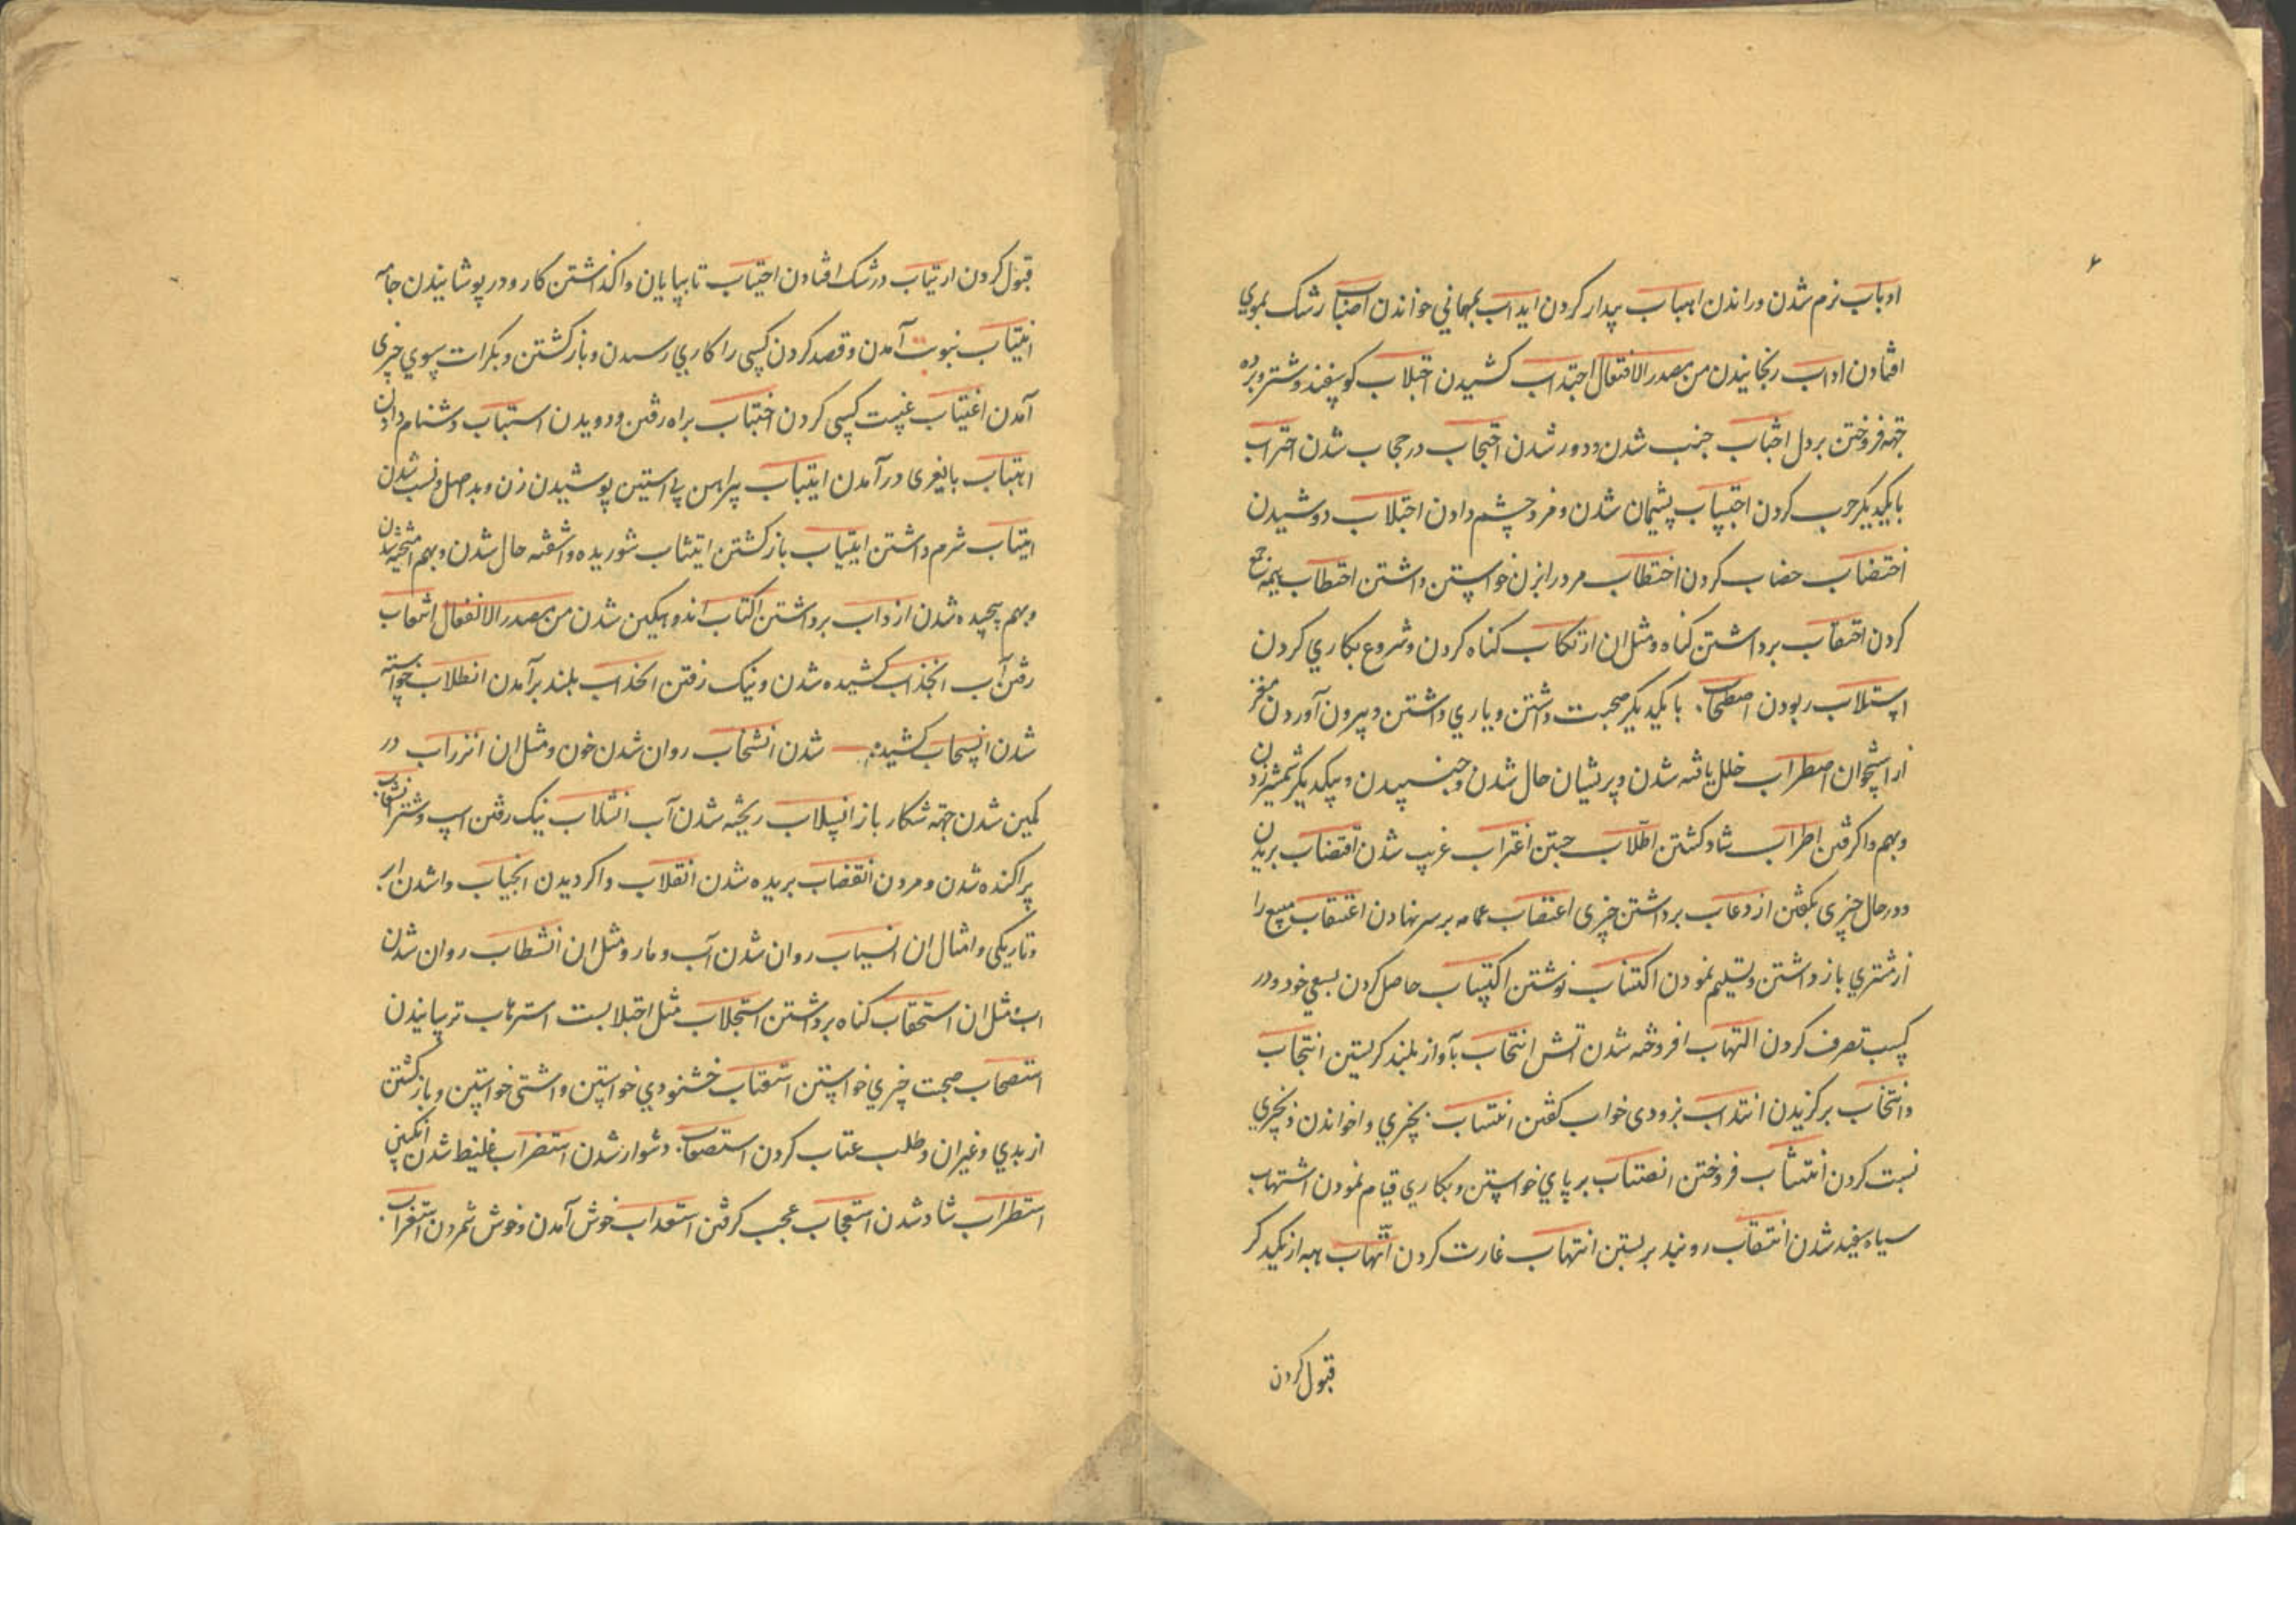 ادباب نرم شدن و راندن اهباب بیدار کردن ایداب بمهمانی خواندن اصباب رشک بموی
افتادن اداب رنجانیدن من مصدر الافتعال اجتداب کشیدن اجتلاب کوسفند و شتر و برده
جهة فروختن بردل اجتناب جنب شدن و دور شدن احتجاب در حجاب شدن احتراب
با یکدیکر حرب کردن احتساب پشیمان شدن و مزد چشم دادن احتلاب دوشیدن
اختضاب خضاب کردن اختطاب مرد را بزن خواستن داشتن احتطاب هیمه جمع
کردن احتقاب برداشتن کناه و مثل ان ارتکاب کناه کردن و شروع بکاری کردن
استلاب ربودن اصطحاب با یکدیکر صحبت داشتن و یاری داشتن و بیرون آوردن مغز
از استخوان اضطراب خلل یافته شدن و پریشان حال شدن و جنبیدن و بیکدیکر شمشیر زدن
و بهم واکرفتن اطراب شاد کشتن اطلاب جستن اغتراب غریب شدن اقتضاب بریدن
و در حال چیزی بکفتن ازدعاب برداشتن چیزی اعتصاب عمامه بر سر نهادن اعتقاب مبیع را
از مشتری باز داشتن و تسلیم نمودن اکتتاب نوشتن اکتساب حاصل کردن بسعی خود و در
کسب تصرف کردن التهاب افروخته شدن آتش انتحاب بآواز بلند کریستن انتجاب
و انتخاب برکزیدن انتداب بزودی جواب کفتن انتساب بچیزی واخواندن و بچیزی
نسبت کردن انتشاب فروختن انتصاب بر پای خواستن و بکاری قیام نمودن اشتهاب
سیاه سفید شدن انتقاب روبند بر بستن انتهاب غارت کردن اتهاب هبه از یکدیکر
قبول کردن
قبول کردن ارتیاب در شک افتادن احتیاب تا بپایان واکذاشتن کار و در پوشانیدن جامه
انتیاب نبوبت آمدن و قصد کردن کسی را کاری رسیدن و باز کشتن و بکرات بسوی چیزی
آمدن اغتیاب غیبت کسی کردن اختباب براه رفتن و دویدن استباب دشنام دادن
اهتباب بانیغری در آمدن ایتباب پیراهن بی استین پوشیدن زن و بد اصل و نسب شدن
ایتاب شرم داشتن ایتیاب باز کشتن ایتشاب شوریده و اشفته حال شدن و بهم امیخته شدن
و بهم پیچیده شدن ازداب برداشتن اکتاب اندوهکین شدن من مصدر الانفعال انثعاب
رفتن آب انجذاب کشیده شدن و نیک رفتن انحداب بلند برآمدن انطلاب خواسته
شدن انسحاب کشیده شدن انشخاب روان شدن خون و مثل ان انزراب در
کمین شدن جهة شکار باز انسلاب ریخته شدن آب انسلاب نیک رفتن اسپ و شتر انشعاب
پراکنده شدن و مردن انقضاب بریده شدن انقلاب واکردیدن انجیاب واشدن ابر
و تاریکی و امثال ان انسیاب روان شدن آب و مار و مثل ان انشطاب روان شدن
اب و مثل ان استحقاب کناه برداشتن استجلاب مثل اجتلابست استرهاب ترسانیدن
استصحاب صحبت چیزی خواستن استعتاب خشنودی خواستن و اشتی خواستن و باز کشتن
از بدی و غیر ان و طلب عتاب کردن استصعاب دشوار شدن استضراب غلیظ شدن انکبین
استطراب شاد شدن استعجاب عجب کرفتن استعذاب خوش آمدن و خوش شمردن استغراب